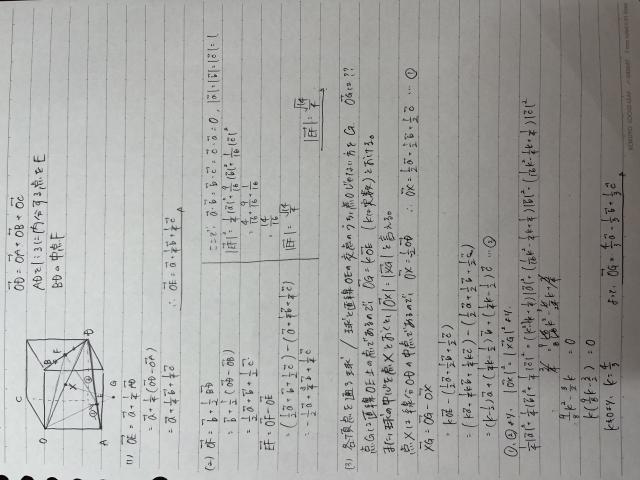 O
C
B
F
D
X
E
A
G
OD→ = OA→ + OB→ + OC→
ADを1:3に内分する点をE
BDの中点F
(1) OE→ = a→ + 1/4 AD→
= a→ + 1/4 (OD→ - OA→)
= a→ + 1/4 b→ + 1/4 c→
∴ OE→ = a→ + 1/4 b→ + 1/4 c→
(2) OF→ = b→ + 1/2 BD→
= b→ + 1/2 (OD→ - OB→)
= 1/2 a→ + b→ + 1/2 c→
EF→ = OF→ - OE→
= (1/2 a→ + b→ + 1/2 c→) - (a→ + 1/4 b→ + 1/4 c→)
= -1/2 a→ + 3/4 b→ + 1/4 c→
ここで、a→・b→ = b→・c→ = c→・a→ = 0, |a→| = |b→| = |c→| = 1
|EF→|² = 1/4 |a→|² + 9/16 |b→|² + 1/16 |c→|²
= 4/16 + 9/16 + 1/16
= 14/16
|EF→| = √14/4
|EF→| = √14/4
(3) 各頂点を通る球 / 球と直線OEの交点のうち点Oじゃない方をG OG→は??
点Gは直線OE上の点であるので、OG→ = kOE→ (kは実数) とおける。
また、球の中心を点Xとおくと |OX→| = |XG→| と言える。
点Xは線分ODの中点であるので、OX→ = 1/2 OD→ ∴ OX→ = 1/2 a→ + 1/2 b→ + 1/2 c→ … ①
XG→ = OG→ - OX→
= kOE→ - (1/2 a→ + 1/2 b→ + 1/2 c→)
= (ka→ + 1/4 kb→ + 1/4 kc→) - (1/2 a→ + 1/2 b→ + 1/2 c→)
= (k - 1/2) a→ + (1/4 k - 1/2) b→ + (1/4 k - 1/2) c→ … ②
①, ②より、|OX→|² = |XG→|² より、
1/4 |a→|² + 1/4 |b→|² + 1/4 |c→|² = (k² - k + 1/4) |a→|² + (1/16 k² - 1/4 k + 1/4) |b→|² + (1/16 k² - 1/4 k + 1/4) |c→|²
9/8 k² - 3/2 k = 0
k (9/8 k - 3/2) = 0
k≠0より、k = 4/3
よって、OG→ = 4/3 a→ + 1/3 b→ + 1/3 c→